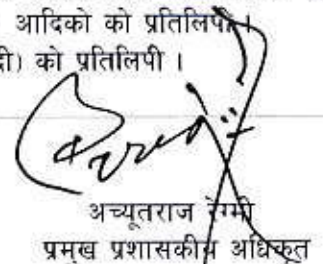 आदिको को प्रतिलिपी।
दी) को प्रतिलिपी ।
अच्यूतराज रेग्मी
प्रमुख प्रशासकीय अधिकृत